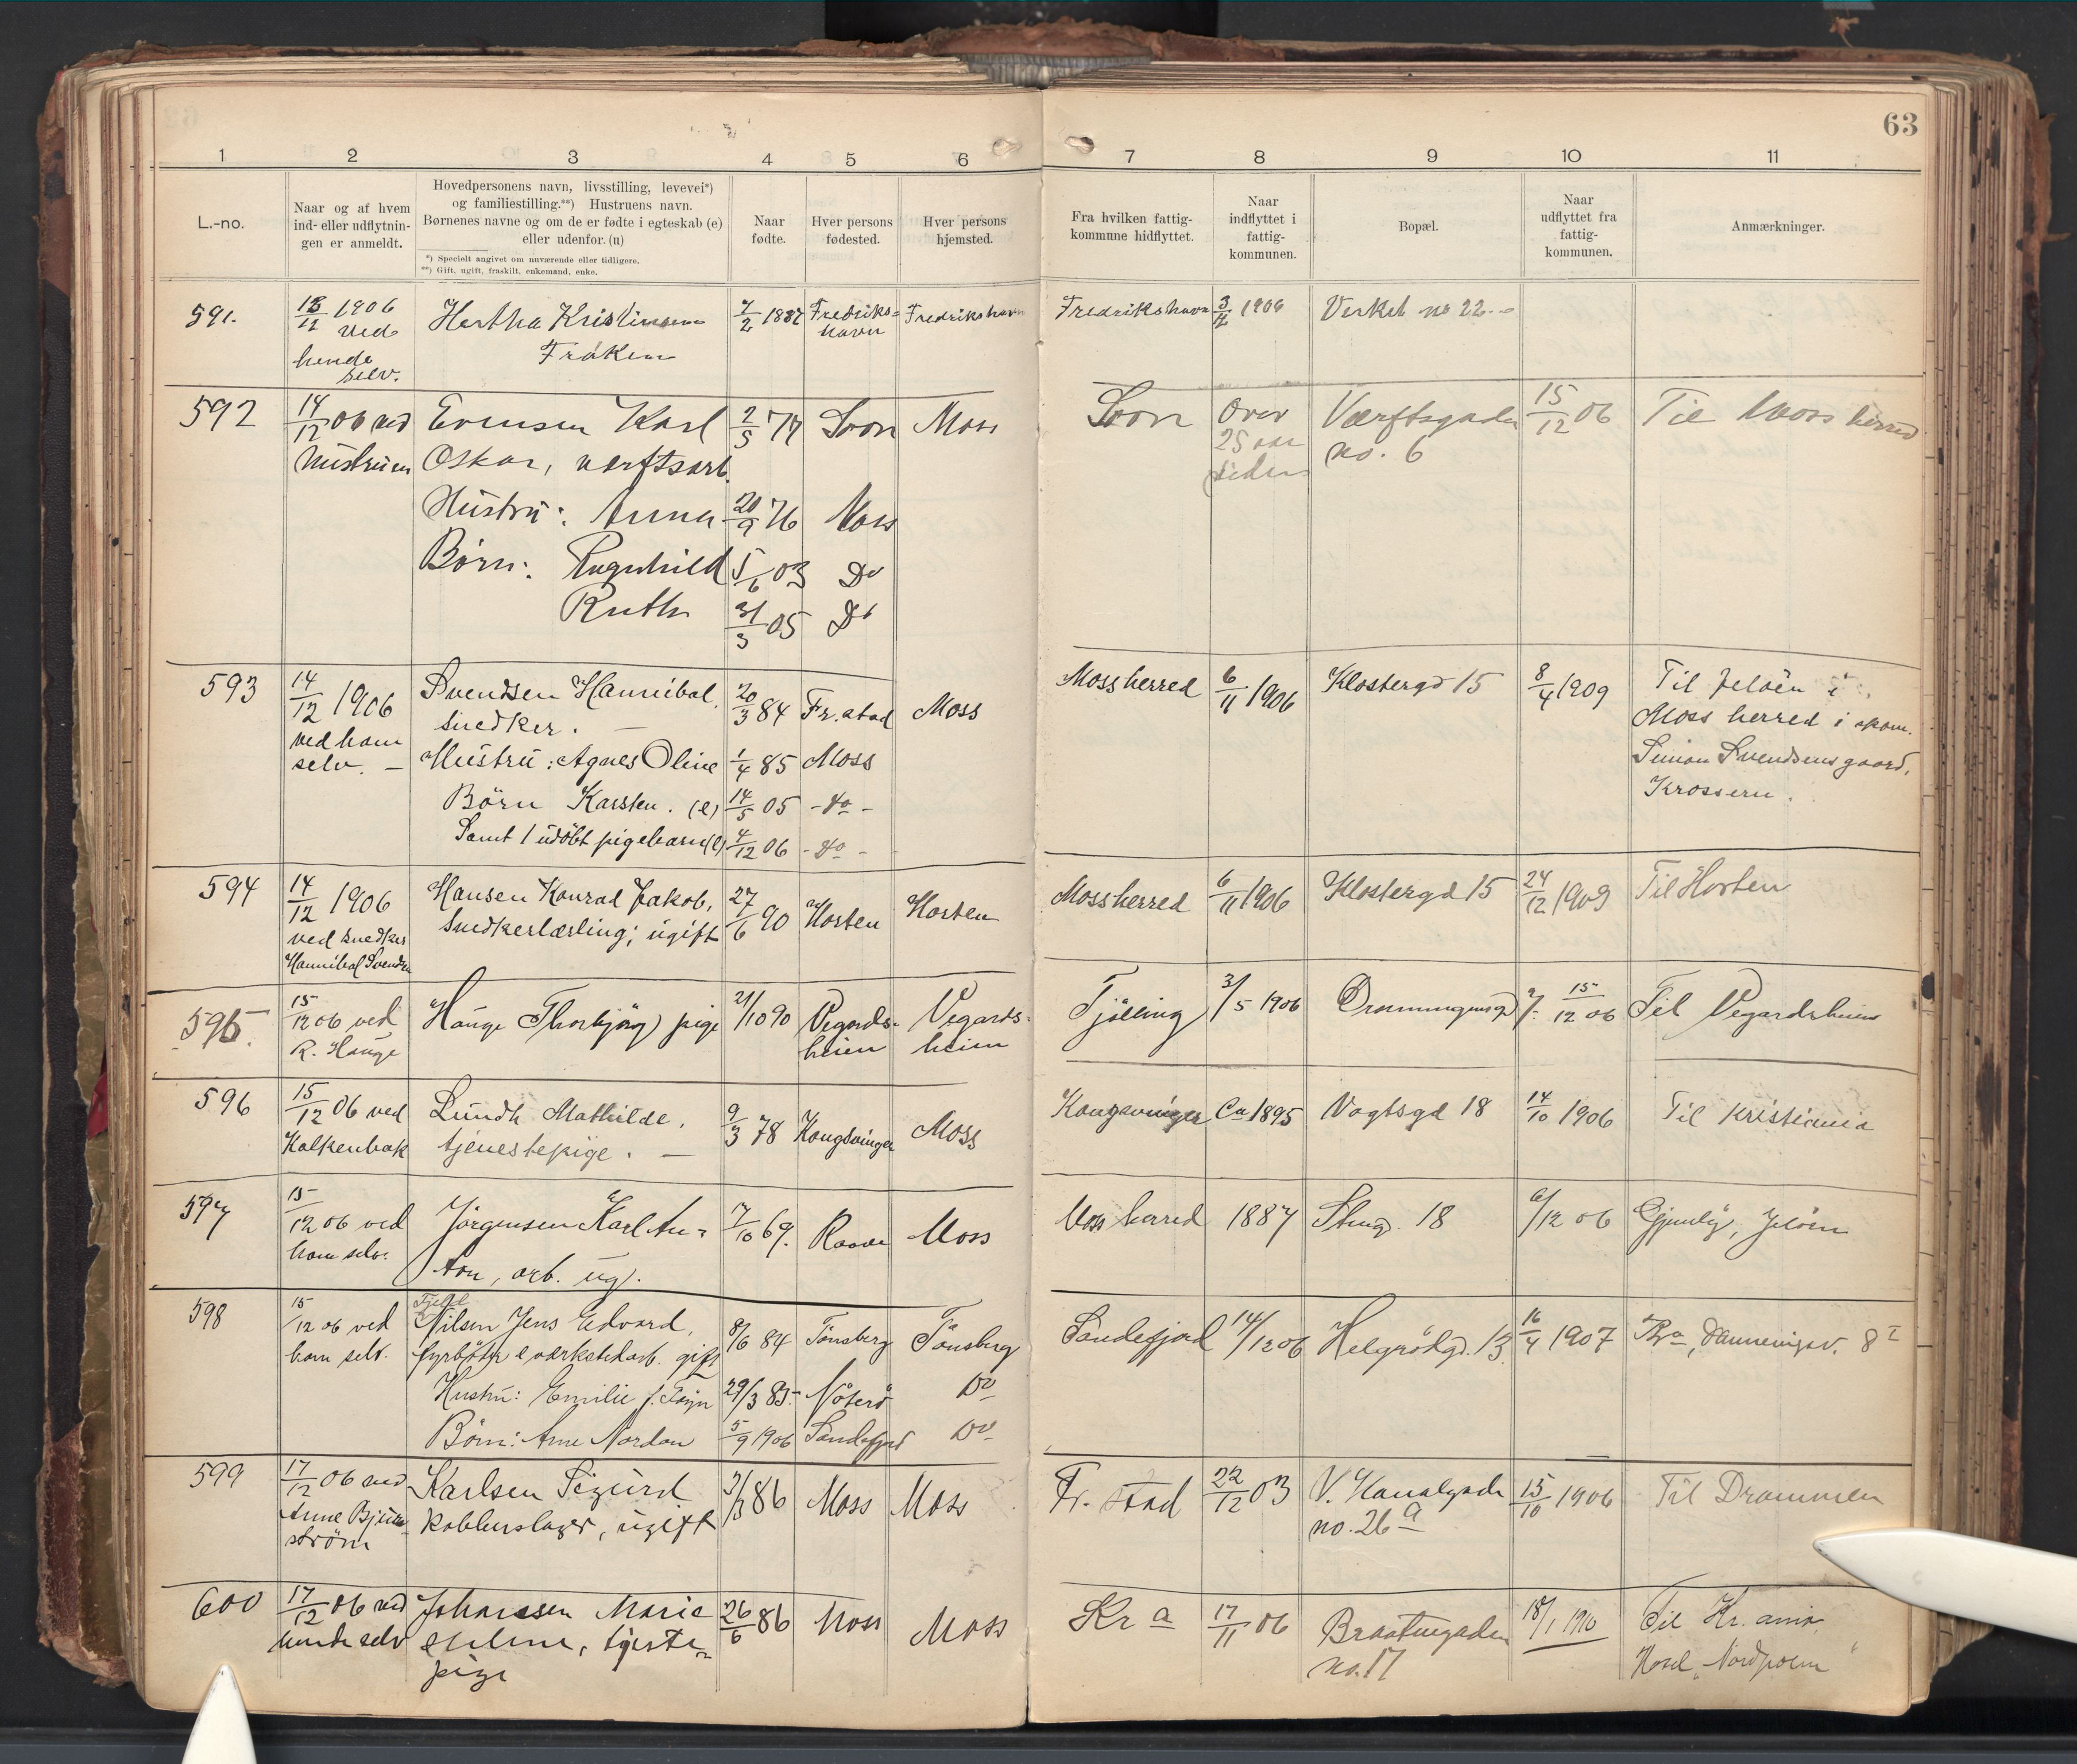 63
1 2 3 4 5 6 7 8 9 10 11
L.-no.
Naar og af hvem
ind- eller udflytnin-
gen er anmeldt.
Hovedpersonens navn, livsstilling, levevei*)
og familiestilling.**) Hustruens navn.
Børnenes navne og om de er fødte i egteskab (e)
eller udenfor. (u)
*) Specielt angivet om nuværende eller tidligere.
**) Gift, ugift, fraskilt, enkemand, enke.
Naar
fødte.
Hver persons
fødested.
Hver persons
hjemsted.
Fra hvilken fattig-
kommune hidflyttet.
Naar
indflyttet i
fattig-
kommunen.
Bopæl.
Naar
udflyttet fra
fattig-
kommunen.
Anmærkninger.
591. 13/12 1906 Hertha Kristinsen 7/2 1887 Fredriks= Fredrikshavn Fredrikshavn 3/4 1906 Verket no 22
ved Frøken havn
hende
selv.
592 14/12 06 ved Evensen Karl 2/5 77 Soon Moss Soon Over Værftsgaden 15/12 06 Til Moss herred
Hustruen Oskar, værftsarb. 25 aar no. 6
siden
Hustru: Anna 20/9 76 Moss
Børn: Ragnhild 5/6 03 Do
Ruth 31/3 05 Do
593 14/12 1906 Svendsen Hannibal, 20/3 84 Fr.stad Moss Mossherred 6/11 1906 Klostergd 15 8/4 1909 Til Jeløen i
ved ham snedker. Moss herred i skom.
selv. Hustru: Agnes Oline 1/4 85 Moss Simon Svendsens gaard,
Børn Karsten. (e) 14/5 05 - do - Krossern.
Samt 1 udøbt pigebarn (e) 4/12 06 - do -
594 14/12 1906 Hansen Konrad Jakob, 27/6 90 Horten Horten Mossherred 6/11 1906 Klostergd 15 24/12 1909 Til Horten
ved snedker snedkerlærling; ugift
Hannibal Svendsen
595. 15/12 06 ved Hauge Thorbjørg pige 21/10 90 Vegards- Vegards- Tjølling 3/5 1906 Dronningensgd 7. 15/12 06 Til Vegardsheien
R. Hauge heien heien
596 15/12 06 ved Lundh Mathilde, 9/3 78 Kongsvinger Moss Kongsvinger Ca 1895 Vogtsgd 18 14/10 1906 Til Kristiania
Kalkenbak tjenestepige.
597 15/12 06 ved Jørgensen Karl An= 7/10 69. Raade Moss Moss herred 1887 Steng. 18 6/12 06 Gjenlø, Jeløen
ham selv. ton, arb. ug.
598 15/12 06 ved Nilsen Jens Edvard, 8/6 84 Tønsberg Tønsberg Sandefjord 14/12 06 Helgerødgd. 13 16/4 1907 Kra, Danneвigsv. 8 I
ham selv. fyrbøter e værkstedarb. gift
Hustru: Emilie f. 29/3 85 Nøterø Do
Børn: Arne Nordan 5/9 1906 Sandefjord Do
599 17/12 06 ved Karlsen Sigurd 3/3 86 Moss Moss Fr. stad 22/12 03 V. Kanalgade 15/10 1906 Til Drammen
Anne Bjerke- kobberslager, ugift no. 26 a
strøm
600 17/12 06 ved Johansen Marie 26/6 86 Moss Moss Kr a 17/11 06 Braatengaden 18/1 1910 Til Kr.ania
hende selv Helene, tjeneste= no. 17 Hotel "Nordpolen"
pige